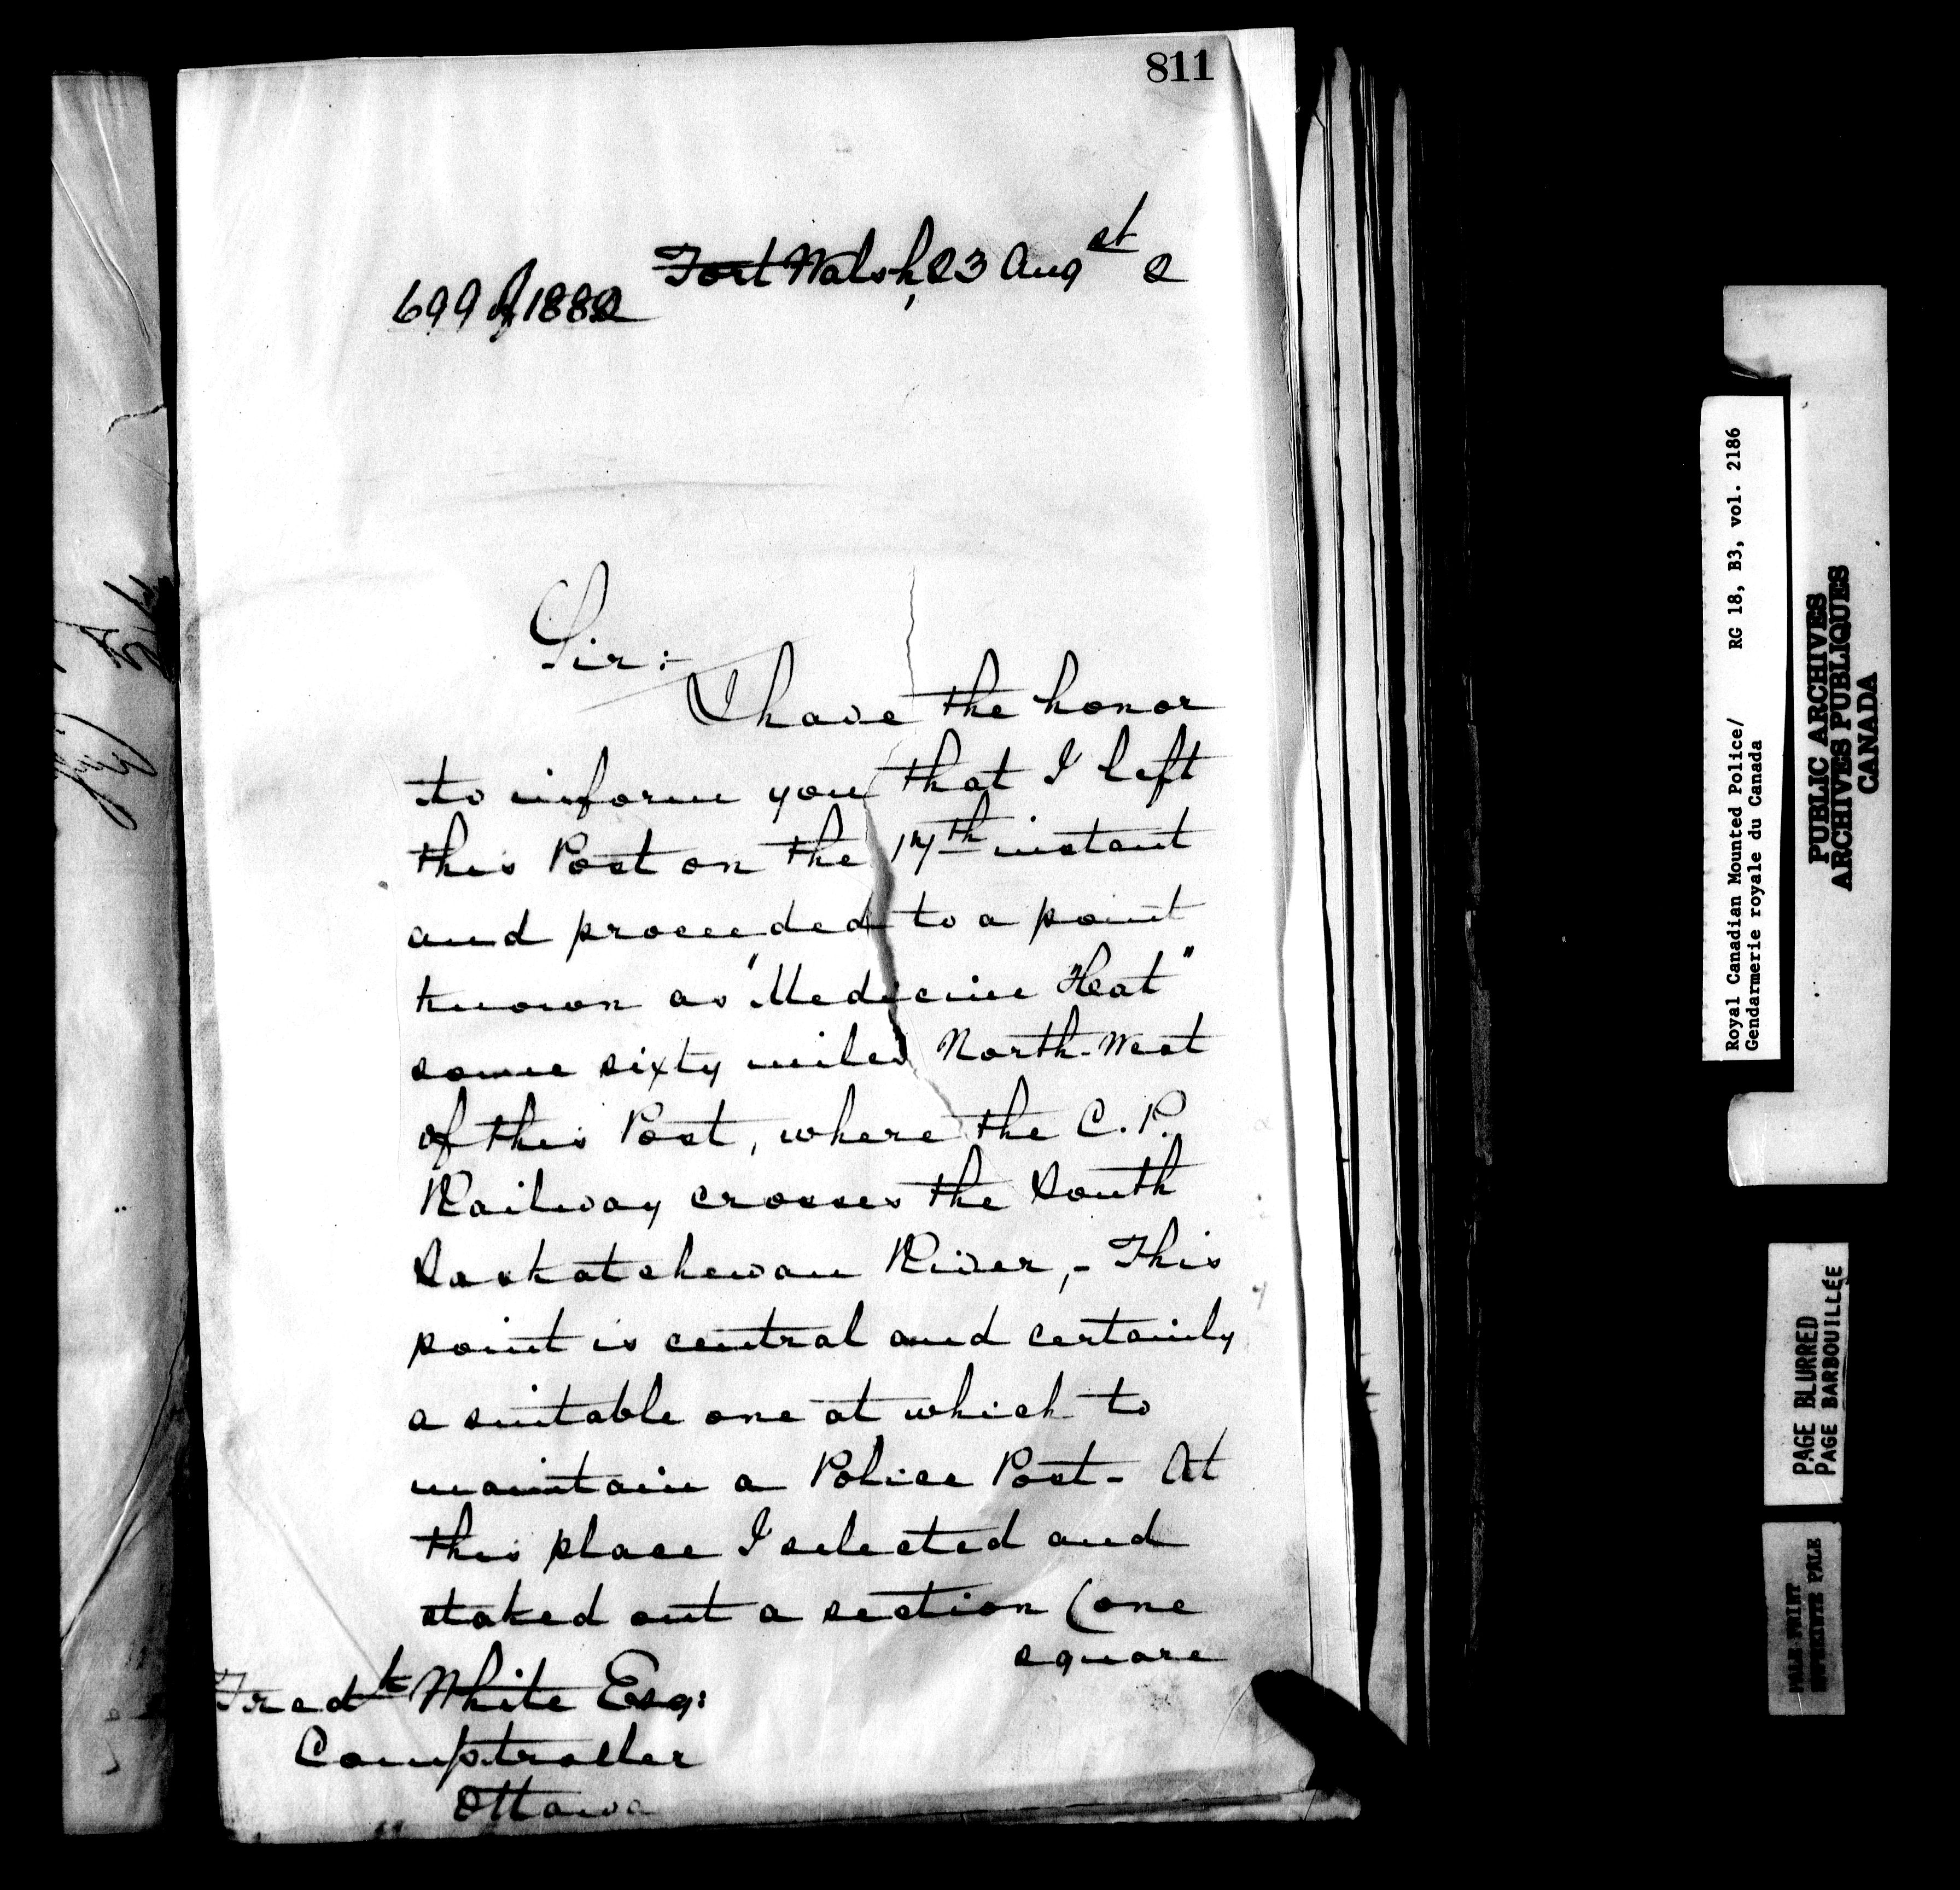 811
Fort Walsh, 23 Augst 2
699 of 1882
Sir:-
I have the honor
to inform you that I left
this Post on the 17th instant
and proceeded to a point
known as "Medecine Heat"
some sixty miles North-West
of this Post, where the C.P.
Railway crosses the South
Saskatchewan River,- This
point is central and certainly
a suitable one at which to
maintain a Police Post- At
this place I selected and
staked out a section (one
square
Fredk White Esq:
Comptroller
Ottawa
Royal Canadian Mounted Police/ RG 18, B3, vol. 2186
Gendarmerie royale du Canada
PUBLIC ARCHIVES
ARCHIVES PUBLIQUES
CANADA
PAGE BLURRED
PAGE BARBOUILLÉE
PALE PRINT